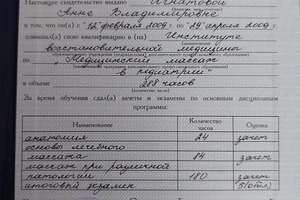 Настоящее свидетельство выдано Игнатовой
Анне Владимировне
в том, что он(а) с "12" февраля 2009 г. по "29" апреля 2009 г.
повысил(а) свою квалификацию в (на) Институте
восстановительной медицины
по "Медицинский массаж
в педиатрии"
в объеме 288 часов
За время обучения сдал(а) зачеты и экзамены по основным дисциплинам
программы:
Наименование Количество часов Оценка
анатомия 24 зачет
основы лечебного
массажа 84 зачет
массаж при различной
патологии 180 зачет
итоговый экзамен 5(отл)